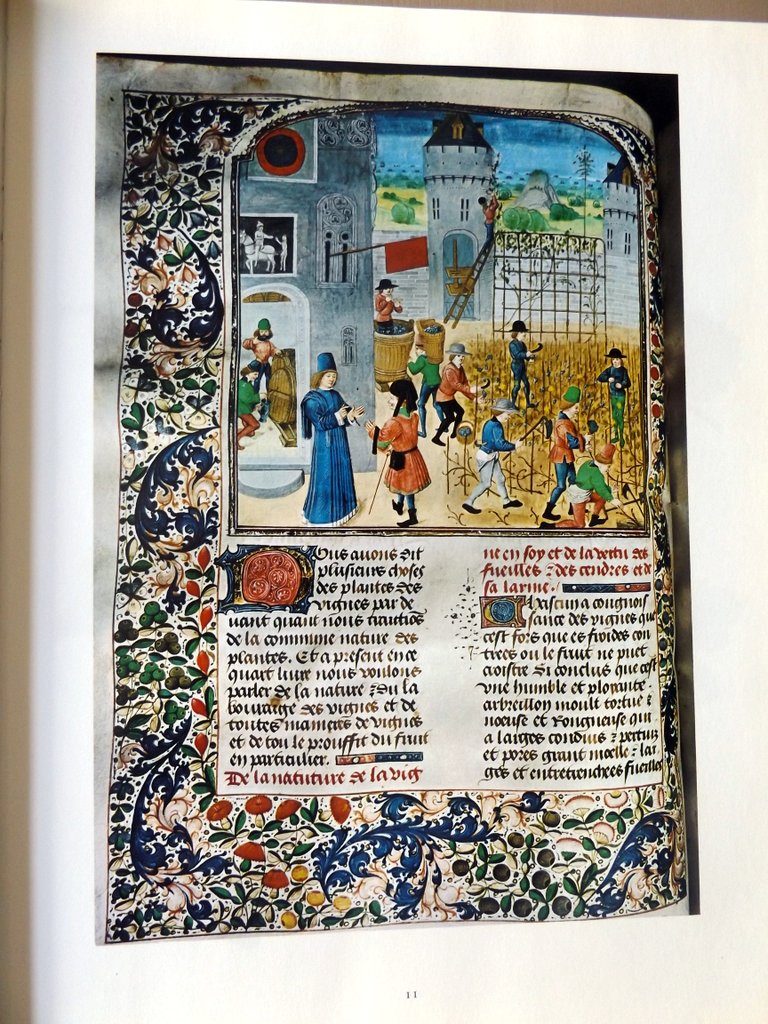 Ous auons dit
plusieurs choses
des plantes des
vignes par de
uant quant nous traitios
de la commune nature des
plantes. Et a present en ce
quart liure nous voulons
parler de la nature & du la
bourage des vignes et de
toutes manieres de vignes
et de tou le prouffit du fruit
en particulier.
De la natuture de la vig
ne en soy et de la vertu des
fueilles & des cendres et de
sa larme.
Chascun a congnois
sance des vignes que
cest fors que es froides con
trees ou le fruit ne puet
croistre Si conclus que cest
vne humble et ployante
arbreillon moult tortue &
noeuse et Rongneuse qui
a larges conduis & pertuz
et pores grant moelle & lar
ges et entretrenchees fueilles
11